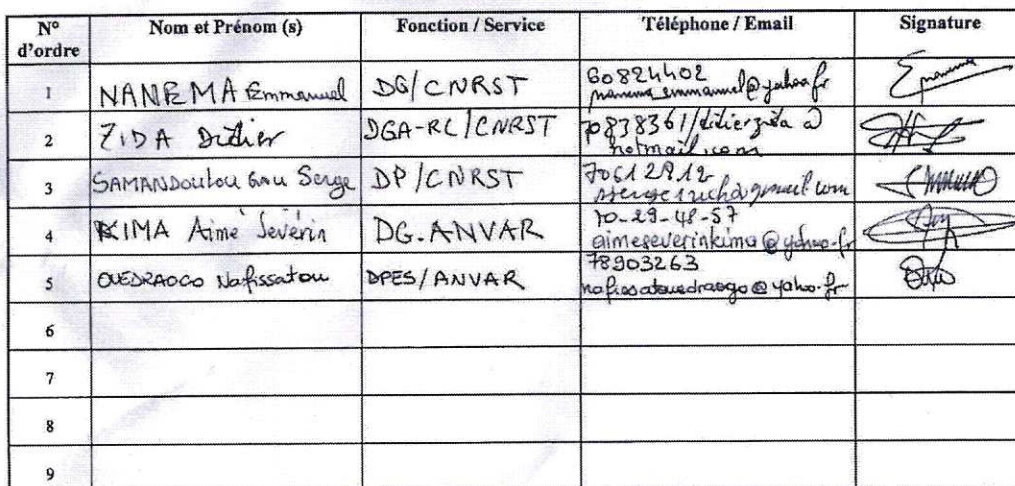 N° d'ordre Nom et Prénom (s) Fonction / Service Téléphone / Email Signature
1 NANEMA Emmanuel DG/CNRST 60824402
nanema_emmanuel@yahoo.fr
2 ZIDA Didier DGA-RC/CNRST 70838361/didierzida @
hotmail.com
3 SAMANDOULOUGOU Serge DP/CNRST 70612812
4 KIMA Aimé Séverin DG.ANVAR 70-29-48-57
aimeseverinkima@yahoo.fr
5 OUEDRAOGO Nafissatou DPES/ANVAR 78903263
nafissatouedraogo@yahoo.fr
6
7
8
9